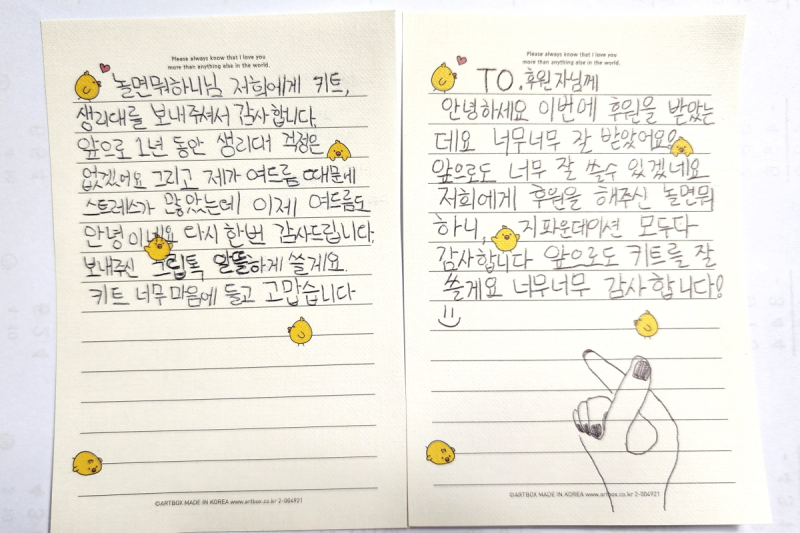 Please always know that I love you
more than anything else in the world.
놀면뭐하니님 저희에게 키트,
생리대를 보내주셔서 감사합니다
앞으로 1년 동안 생리대 걱정은
없겠어요 그리고 제가 여드름 때문에
스트레스가 많았는데 이제 여드름도
안녕이네요 다시 한번 감사드립니다.
보내주신 그립톡 알뜰하게 쓸게요.
키트 너무 마음에 들고 고맙습니다
©ARTBOX MADE IN KOREA www.artbox.co.kr 2-004921
Please always know that I love you
more than anything else in the world.
TO.후원자님께
안녕하세요 이번에 후원을 받았는
데요 너무너무 잘 받았어요?
앞으로도 너무 잘 쓸수 있겠네요
저희에게 후원을 해주신 놀면뭐
하니, 지파운데이션 모두다
감사합니다 앞으로도 키트를 잘
쓸게요 너무너무 감사합니다!
©ARTBOX MADE IN KOREA www.artbox.co.kr 2-004921